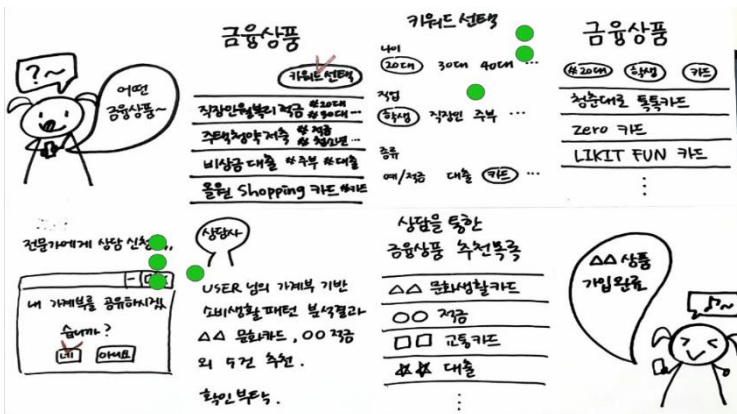 ?~
어떤
금융상품~
금융상품
키워드 선택
직장인월복리적금 #20대 #30대 ...
주택청약저축 #적금 #청소년 ...
비상금대출 #주부 #대출
올원 Shopping 카드 #카드
키워드 선택
나이
20대 30대 40대 ...
직업
학생 직장인 주부 ...
종류
예/적금 대출 카드 ...
금융상품
#20대 학생 카드
청춘대로 톡톡카드
Zero 카드
LIKIT FUN 카드
전문가에게 상담 신청
내 가계부를 공유하시겠
습니까?
네 아니요
상담사
USER 님의 가계부 기반
소비생활패턴 분석결과
△△ 문화카드, ○○ 적금
외 5건 추천.
확인부탁.
상담을 통한
금융상품 추천목록
△△ 문화생활카드
○○ 적금
□□ 교통카드
☆☆ 대출
△△ 상품
가입완료
♪~